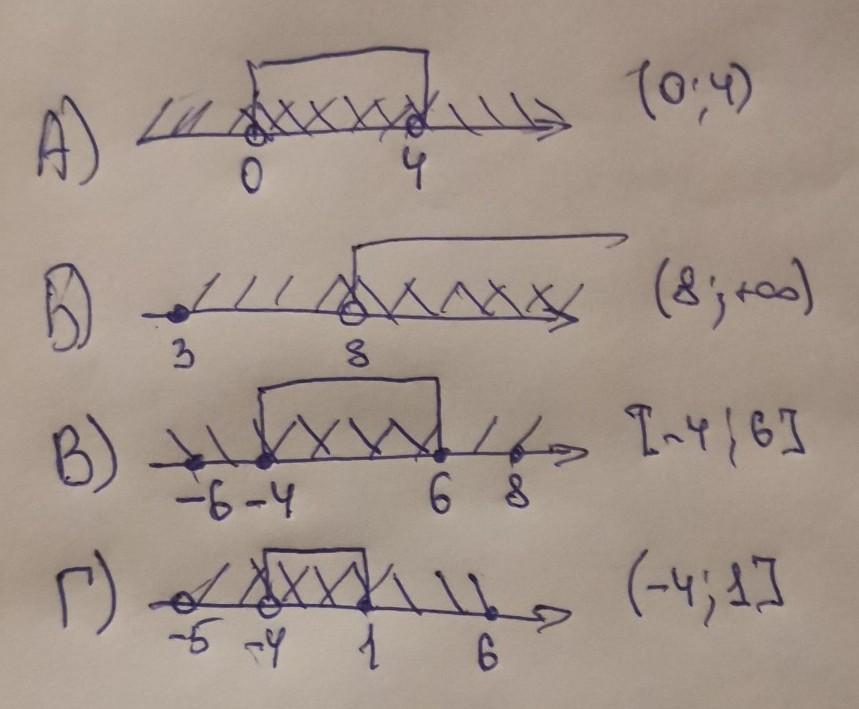 А) (0;4)
0 4
Б) (8;+∞)
3 8
В) [-4;6]
-6 -4 6 8
Г) (-4;1]
-5 -4 1 6